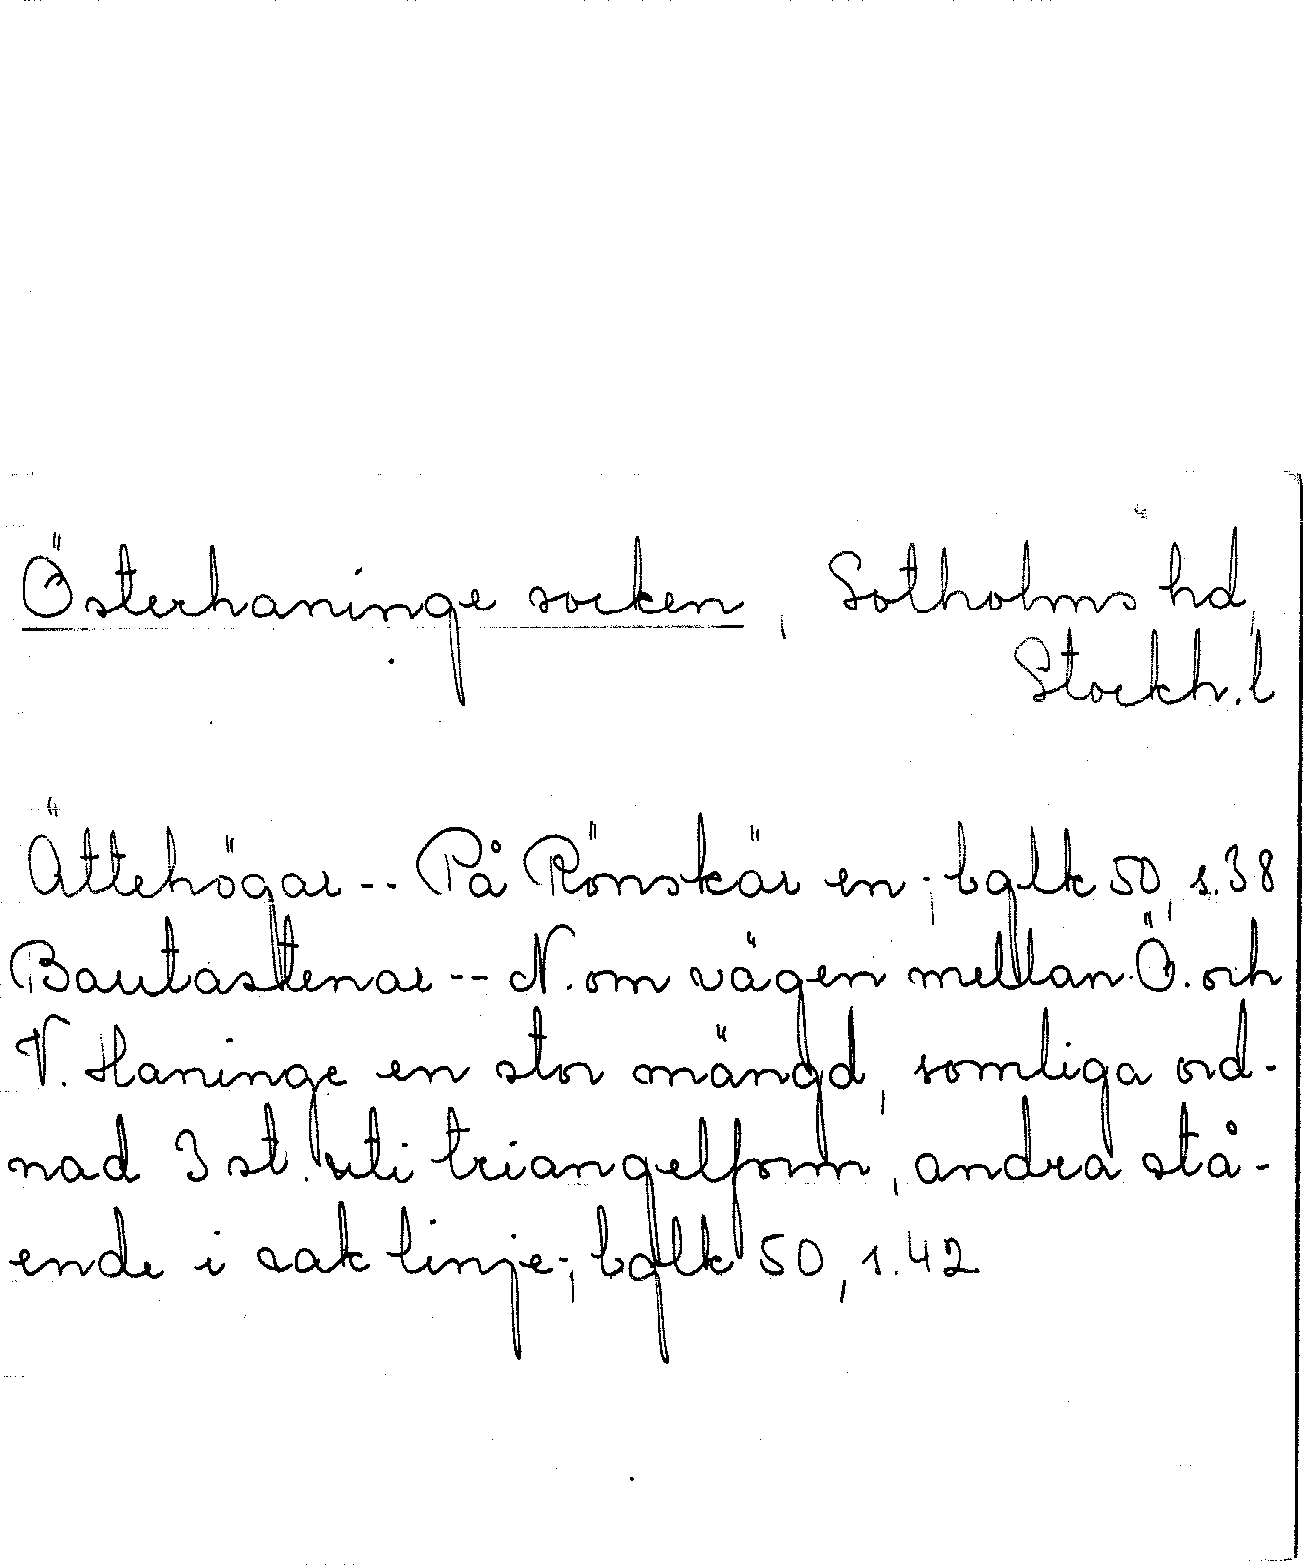 Österhaninge socken, Sotholms hd,
Stockh. l
Ättehögar -- På Rönskär en -; bqlk 50, s. 38
Bautastenar -- N. om vägen mellan Ö. och
V. Haninge en stor mängd, somliga ord-
nad 3 st. uti triangelform, andra stå-
ende i rak linje -; bqlk 50, s. 42